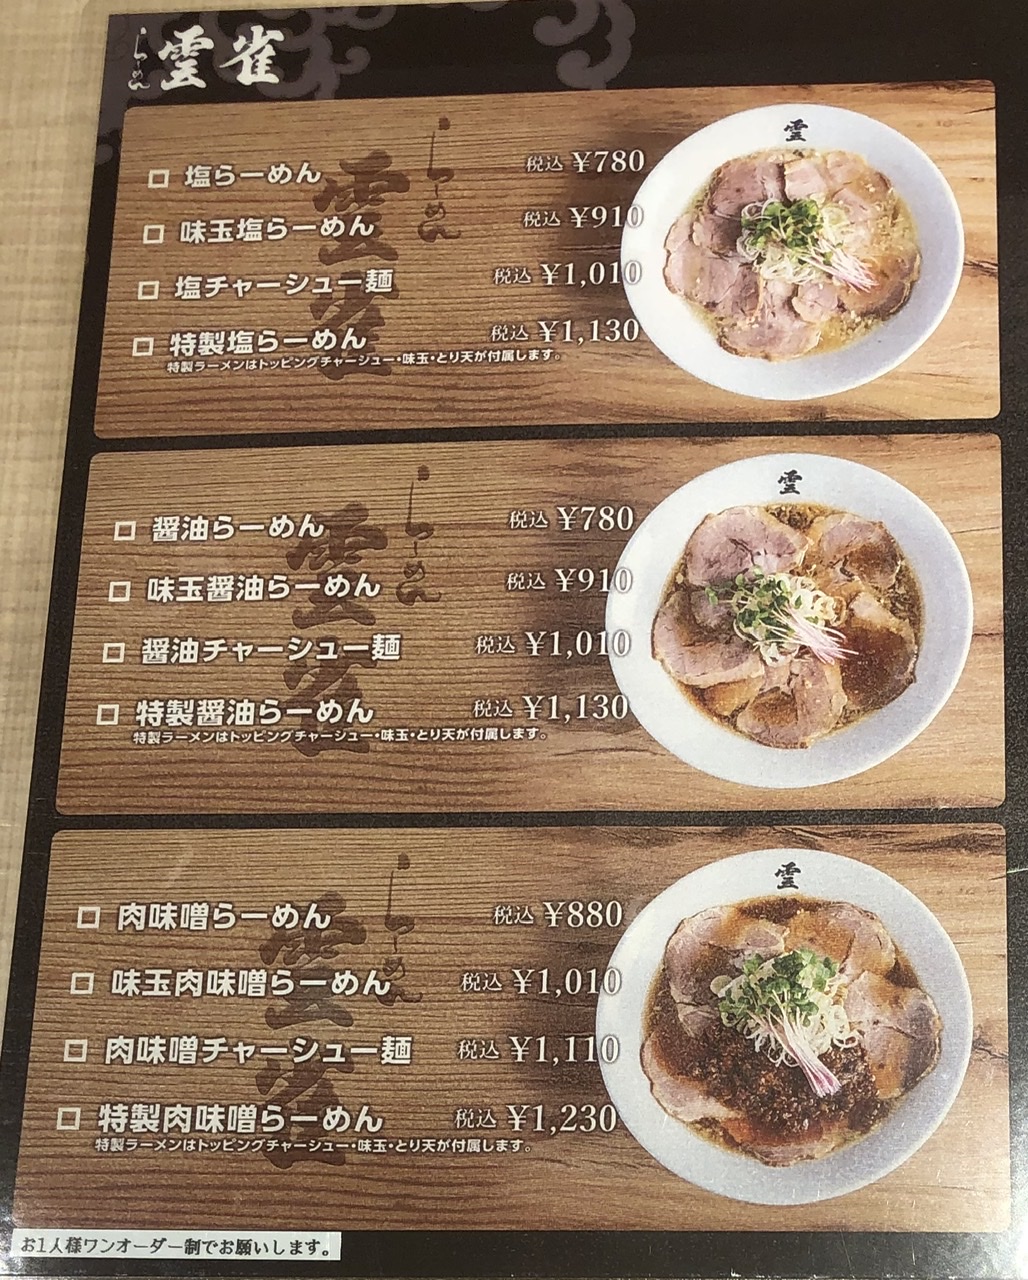 らーめん 雲雀
□ 塩らーめん 税込 ¥780
□ 味玉塩らーめん 税込 ¥910
□ 塩チャーシュー麺 税込 ¥1,010
□ 特製塩らーめん 税込 ¥1,130
特製ラーメンはトッピングチャーシュー・味玉・とり天が付属します。
らーめん 雲雀
雲
□ 醤油らーめん 税込 ¥780
□ 味玉醤油らーめん 税込 ¥910
□ 醤油チャーシュー麺 税込 ¥1,010
□ 特製醤油らーめん 税込 ¥1,130
特製ラーメンはトッピングチャーシュー・味玉・とり天が付属します。
らーめん 雲雀
雲
□ 肉味噌らーめん 税込 ¥880
□ 味玉肉味噌らーめん 税込 ¥1,010
□ 肉味噌チャーシュー麺 税込 ¥1,110
□ 特製肉味噌らーめん 税込 ¥1,230
特製ラーメンはトッピングチャーシュー・味玉・とり天が付属します。
らーめん 雲雀
雲
お1人様ワンオーダー制でお願いします。